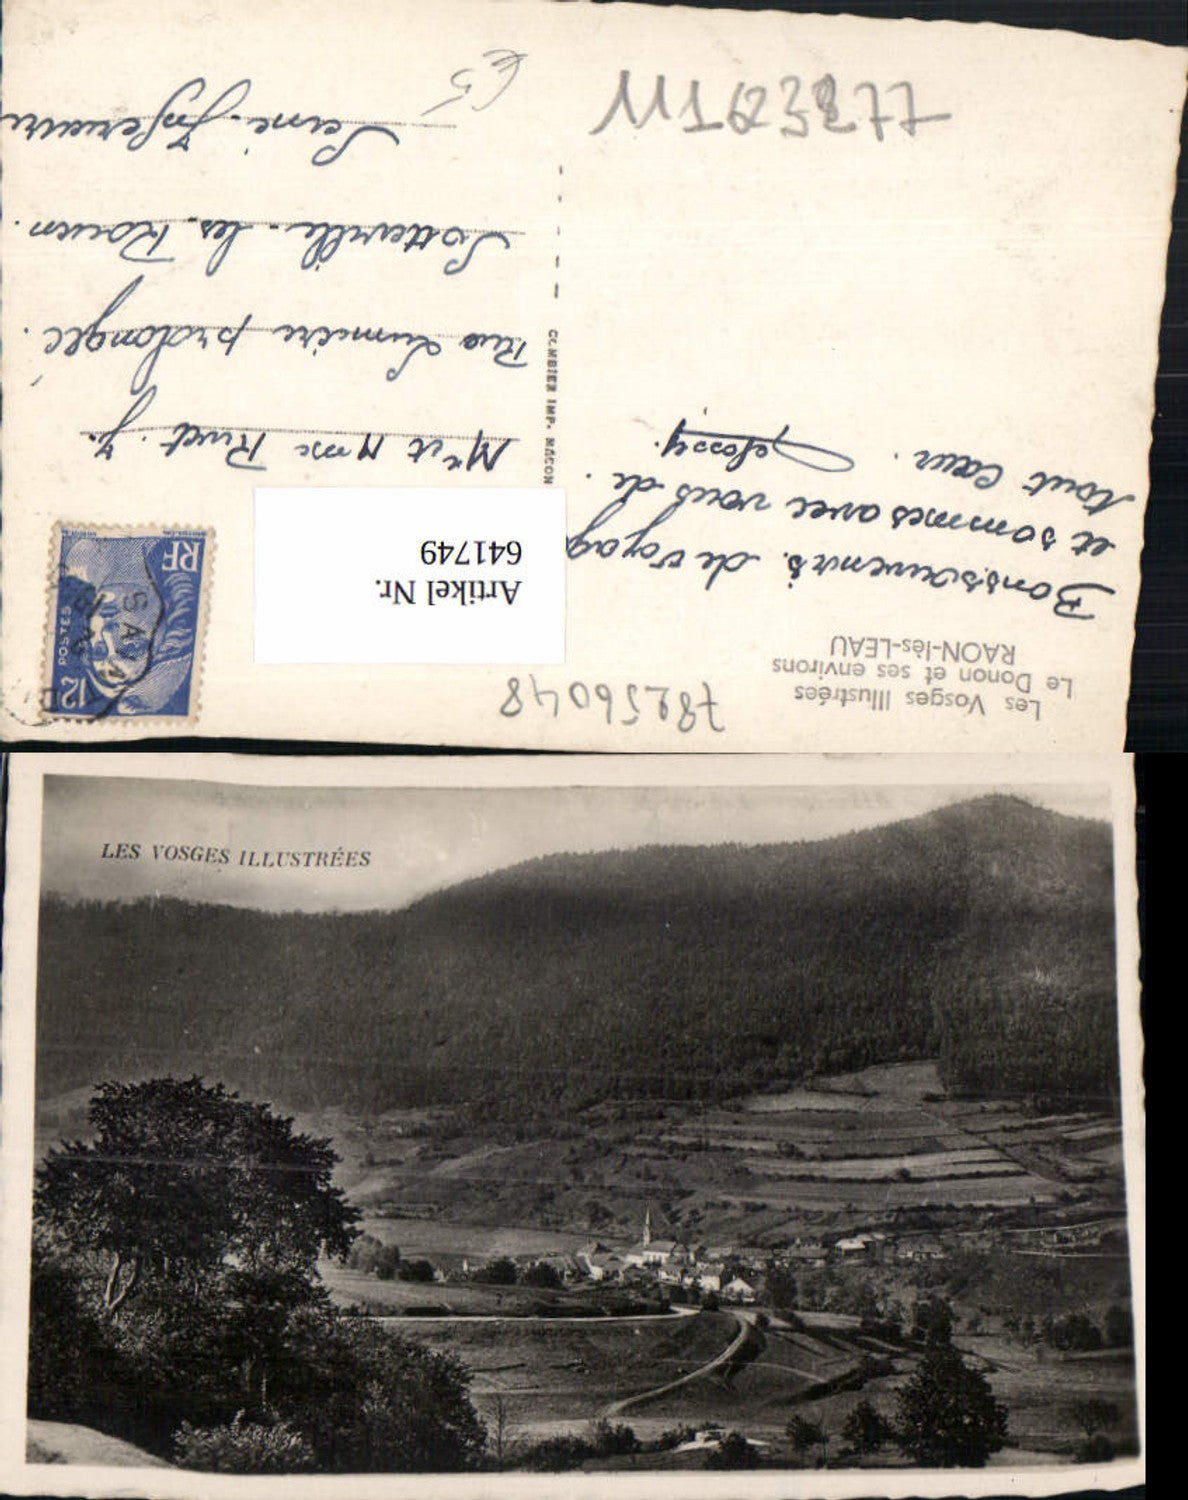 Les Vosges Illustrées
Le Donon et ses environs
RAON-lès-LEAU
78256048
Bons souvenirs de voyage
et sommes avec vous de
tout Cœur.
Artikel Nr.
641749
RF
12F POSTES
COMBIER IMP. MACON
Mr et Mme Rivet. J.
Rue Lumière prolongée.
Sotteville-les-Rouen.
Seine-Inférieure
€5
LES VOSGES ILLUSTRÉES